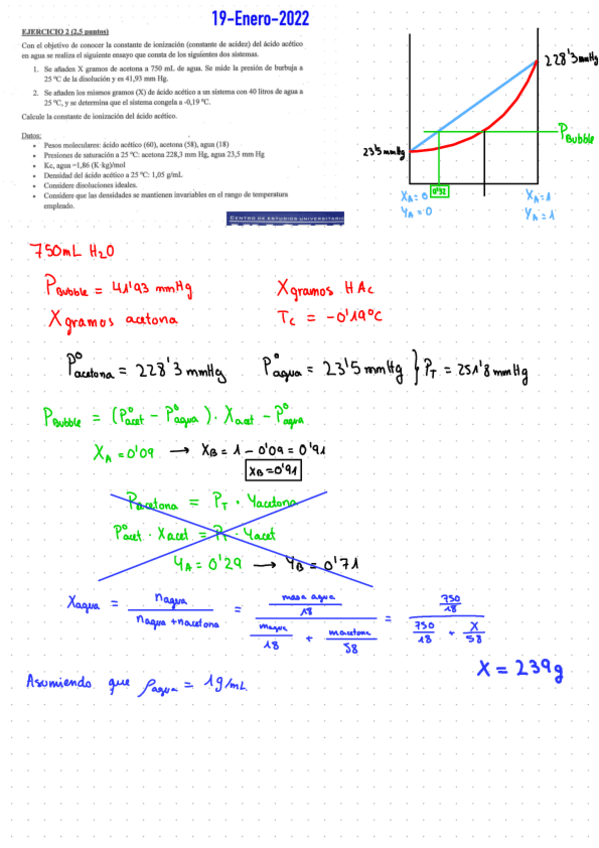 19-Enero-2022
EJERCICIO 2 (2,5 puntos)
Con el objetivo de conocer la constante de ionización (constante de acidez) del ácido acético
en agua se realiza el siguiente ensayo que consta de los siguientes dos sistemas.
1. Se añaden X gramos de acetona a 750 mL de agua. Se mide la presión de burbuja a
25 ºC de la disolución y es 41,93 mm Hg.
2. Se añaden los mismos gramos (X) de ácido acético a un sistema con 40 litros de agua a
25 ºC, y se determina que el sistema congela a -0,19 ºC.
Calcule la constante de ionización del ácido acético.
Datos:
• Pesos moleculares: ácido acético (60), acetona (58), agua (18)
• Presiones de saturación a 25 ºC: acetona 228,3 mm Hg, agua 23,5 mm Hg
• Kc, agua =1,86 (K·kg)/mol
• Densidad del ácido acético a 25 ºC: 1,05 g/mL
• Considere disoluciones ideales.
• Considere que las densidades se mantienen invariables en el rango de temperatura
empleado.
CENTRO DE ESTUDIOS UNIVERSITARIO
228'3 mmHg
P Bubble
23'5 mmHg
0'32
X_A = 0
X_A = 1
Y_A = 0
Y_A = 1
750mL H2O
P_Bubble = 41'93 mmHg
X gramos HAc
X gramos acetona
T_c = -0'19ºC
Pº_acetona = 228'3 mmHg Pº_agua = 23'5 mmHg } P_T = 251'8 mmHg
P_Bubble = (Pº_acet - Pº_agua) · X_acet - Pº_agua
X_A = 0'09 → X_B = 1 - 0'09 = 0'91
X_B = 0'91
P_acetona = P_T · Y_acetona
Pº_acet · X_acet = P_T · Y_acet
Y_A = 0'29 → Y_B = 0'71
X_agua = n_agua / (n_agua + n_acetona) = (masa agua / 18) / (m_agua / 18 + m_acetona / 58) = (750 / 18) / (750 / 18 + X / 58)
X = 239 g
Asumiendo que ρ_agua = 1 g/mL